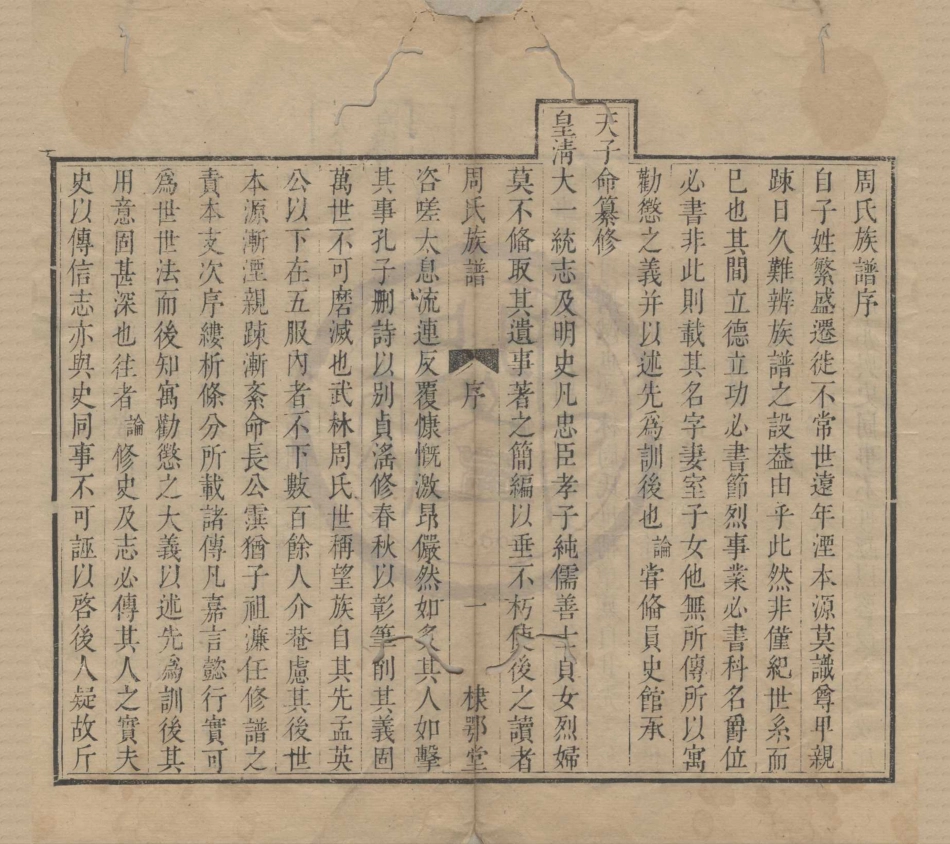 周氏族譜序
自子姓繁盛遷徙不常世遠年湮本源莫識尊卑親
踈日久難辨族譜之設葢由乎此然非僅紀世系而
已也其間立德立功必書節烈事業必書科名爵位
必書非此則載其名字妻室子女他無所傳所以寓
勸懲之義并以述先爲訓後也論甞備員史館承
天子命纂修
皇淸大一統志及明史凡忠臣孝子純儒善士貞女烈婦
莫不備取其遺事著之簡編以垂不朽使後之讀者
周氏族譜 序 一 棣鄂堂
咨嗟太息流連反覆慷慨激昂儼然如炙其人如擊
其事孔子刪詩以别貞滛修春秋以彰筆削其義固
萬世不可磨滅也武林周氏世稱望族自其先孟英
公以下在五服內者不下數百餘人介菴慮其後世
本源漸湮親踈漸紊命長公雲猶子祖濂任修譜之
責本支次序縷析條分所載諸傳凡嘉言懿行實可
爲世世法而後知寓勸懲之大義以述先爲訓後其
用意固甚深也往者論修史及志必傳其人之實夫
史以傳信志亦與史同事不可誣以啓後人疑故斤